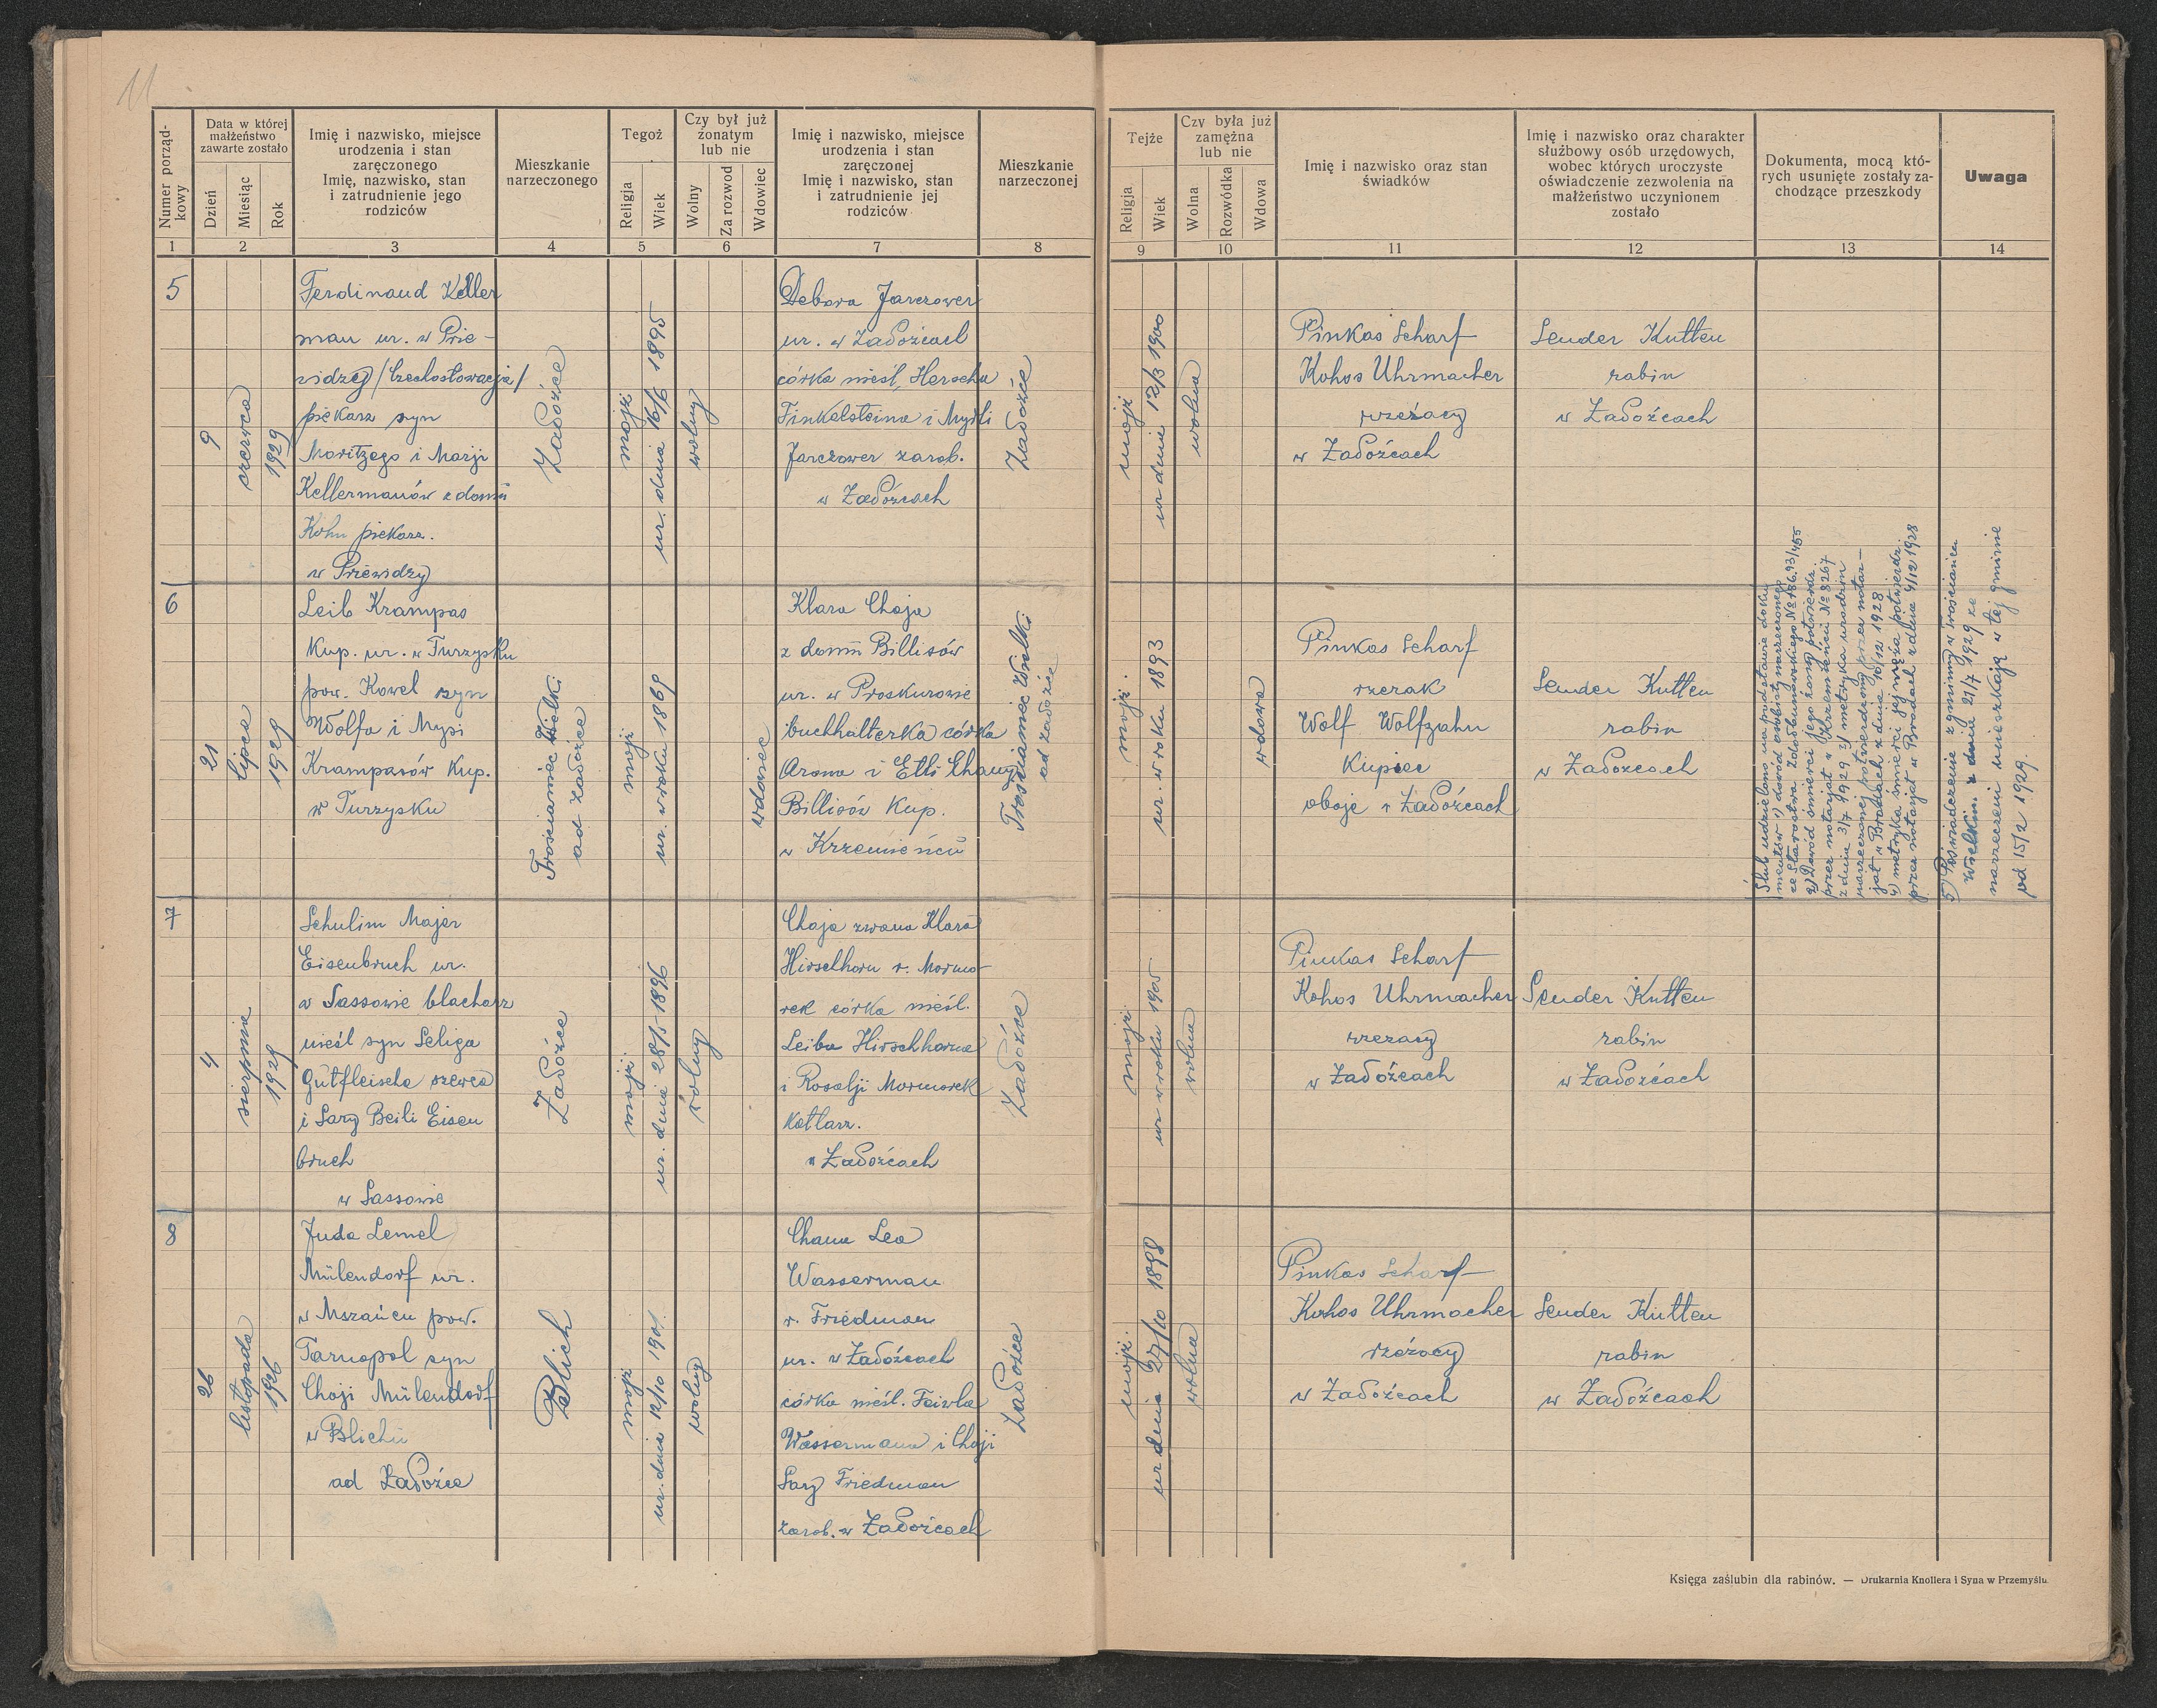 11
Numer porząd-
kowy
Data w której
małżeństwo
zawarte zostało
Dzień
Miesiąc
Rok
Imię i nazwisko, miejsce
urodzenia i stan
zaręczonego
Imię, nazwisko, stan
i zatrudnienie jego
rodziców
Mieszkanie
narzeczonego
Tegoż
Religja
Wiek
Czy był już
żonatym
lub nie
Wolny
Za rozwod
Wdowiec
Imię i nazwisko, miejsce
urodzenia i stan
zaręczonej
Imię i nazwisko, stan
i zatrudnienie jej
rodziców
Mieszkanie
narzeczonej
Tejże
Religja
Wiek
Czy była już
zamężna
lub nie
Wolna
Rozwódka
Wdowa
Imię i nazwisko oraz stan
świadków
Imię i nazwisko oraz charakter
służbowy osób urzędowych,
wobec których uroczyste
oświadczenie zezwolenia na
małżeństwo uczynionem
zostało
Dokumenta, mocą któ-
rych usunięte zostały za-
chodzące przeszkody
Uwaga
1 2 3 4 5 6 7 8 9 10 11 12 13 14
5
9
czerwca
1929
Ferdinand Keller
man ur. w Prie-
widzy /Czechosłowacja/
piekarz syn
Moritzego i Marji
Kellermanów z domu
Kohn piekarz.
w Priewidzy
Załoźce
mojż
ur. dnia 16/6 1895
wolny
Debora Jarczower
ur. w Załoźcach
córka nieśl. Herscha
Finkelsteina i Myśli
Jarczower zarob.
w Załoźcach
Załoźce
mojż
ur dnia 12/3 1900
wolna
Pinkas Scharf
Kohos Uhrmacher
rzezacy
w Załoźcach
Sender Kutten
rabin
w Załoźcach
6
21
lipca
1929
Leib Krampas
Kup. ur. w Turzysku
pow. Kowel syn
Wolfa i Mysi
Krampasów Kup.
w Turzysku
Trościaniec Wielki
ad Załoźce
mojż
ur. w roku 1869
wdowiec
Klara Chaja
z domu Billisów
ur. w Proskurowie
buchhalterka córka
Arona i Etli Chany
Billisów Kup.
w Krzemieńcu
Trościaniec Wielki
ad Załoźce
mojż.
ur. w roku 1893
wdowa
Pinkas Scharf
rzezak
Wolf Wolfzahn
Kupiec
oboje w Załoźcach
Sender Kutten
rabin
w Załoźcach
Ślub udzielono na podstawie doku
mentów 1) dowód osobisty narzeczonego
ze Starostwa Zdołbunowskiego
2) Dowód śmierci jego żony potwierdz.
przez notarjat w Krzemieńcu № 8267
z dnia 3/7 1929 3) metryka urodzin
narzeczonej potwierdzona przez notar-
jat w Brodach z dnia 10/12 1928
4) metryka śmierci jej męża potwierdz.
przez notarjat w Brodach z dnia 4/12 1928
5) Poświadczenie z gminy w Trościańcu
Wielkim z dnia 21/7 1929 że
narzeczeni mieszkają w tej gminie
od 15/2 1929.
7
4
sierpnia
1929
Schulim Majer
Eisenbruch ur.
w Sassowie blacharz
nieśl syn Seliga
Gutfleischa szewca
i Sary Beili Eisen
bruch
w Sassowie
Załoźce
mojż
ur. dnia 28/5 1896
wolny
Chaja zwana Klara
Hirschhorn v. Mormo-
rek córka nieśl.
Leiba Hirschhorna
i Rosalji Mormorek
Kotlarz.
w Załoźcach
Załoźce
mojż
ur w roku 1905
wolna
Pinkas Scharf
Kohos Uhrmacher
rzezacy
w Załoźcach
Sender Kutten
rabin
w Załoźcach
8
26
listopada
1926
Juda Lemel
Mülendorf ur.
w Mszańcu pow.
Tarnopol syn
Chaji Mülendorf
w Blichu
ad Załoźce
Blich
mojż
ur. dnia 12/10 1901
wolny
Chana Lea
Wasserman
v. Friedman
ur. w Załoźcach
córka nieśl. Feiwla
Wassermana i Chaji
Sary Friedman
zarob. w Załoźcach
Załoźce
mojż.
ur dnia 27/10 1898
wolna
Pinkas Scharf
Kohos Uhrmacher
rzezacy
w Załoźcach
Sender Kutten
rabin
w Załoźcach
Księga zaślubin dla rabinów. — Drukarnia Knollera i Syna w Przemyślu